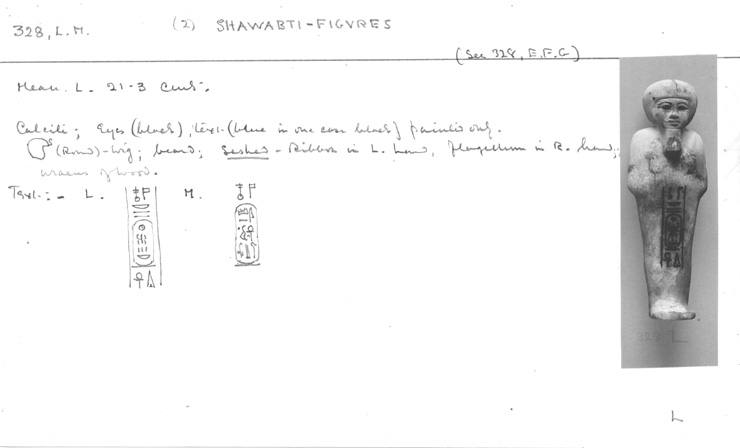 328, L.M. (2) SHAWABTI-FIGVRES
(See 328, E.F.G)
Mean. L. 21-3 cent.
Calcite; Eyes (black); text (blue in one case black) painted only.
(Round)-wig; beard; Seshed-Ribbon in L. hand, flagellum in R. hand;
uraeus of wood.
Text:- L. M.
328 L
L